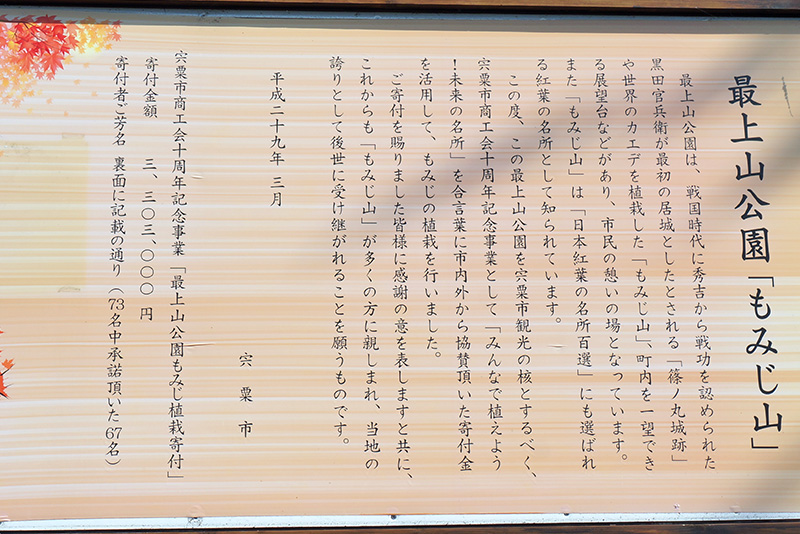 最上山公園「もみじ山」
最上山公園は、戦国時代に秀吉から戦功を認められた
黒田官兵衛が最初の居城としたとされる「篠ノ丸城跡」
や世界のカエデを植栽した「もみじ山」、町内を一望でき
る展望台などがあり、市民の憩いの場となっています。
また「もみじ山」は「日本紅葉の名所百選」にも選ばれ
る紅葉の名所として知られています。
この度、この最上山公園を宍粟市観光の核とするべく、
宍粟市商工会十周年記念事業として「みんなで植えよう
！未来の名所」を合言葉に市内外から協賛頂いた寄付金
を活用して、もみじの植栽を行いました。
ご寄付を賜りました皆様に感謝の意を表しますと共に、
これからも「もみじ山」が多くの方に親しまれ、当地の
誇りとして後世に受け継がれることを願うものです。
平成二十九年 三月
宍粟市
宍粟市商工会十周年記念事業「最上山公園もみじ植栽寄付」
寄付金額 三、三〇三、〇〇〇 円
寄付者ご芳名 裏面に記載の通り（73名中承諾頂いた67名）